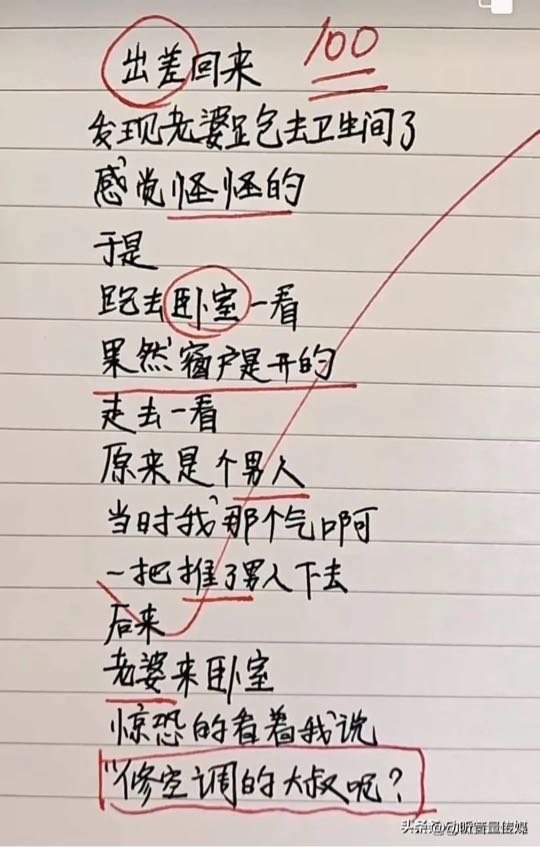 出差回来 100
发现老婆跑去卫生间了
感觉怪怪的
于是
跑去卧室一看
果然窗户是开的
走去一看
原来是个男人
当时我那个气啊
一把推了男人下去
后来
老婆来卧室
惊恐的看着我说
"修空调的大叔呢?
头条@幼昕音量传媒